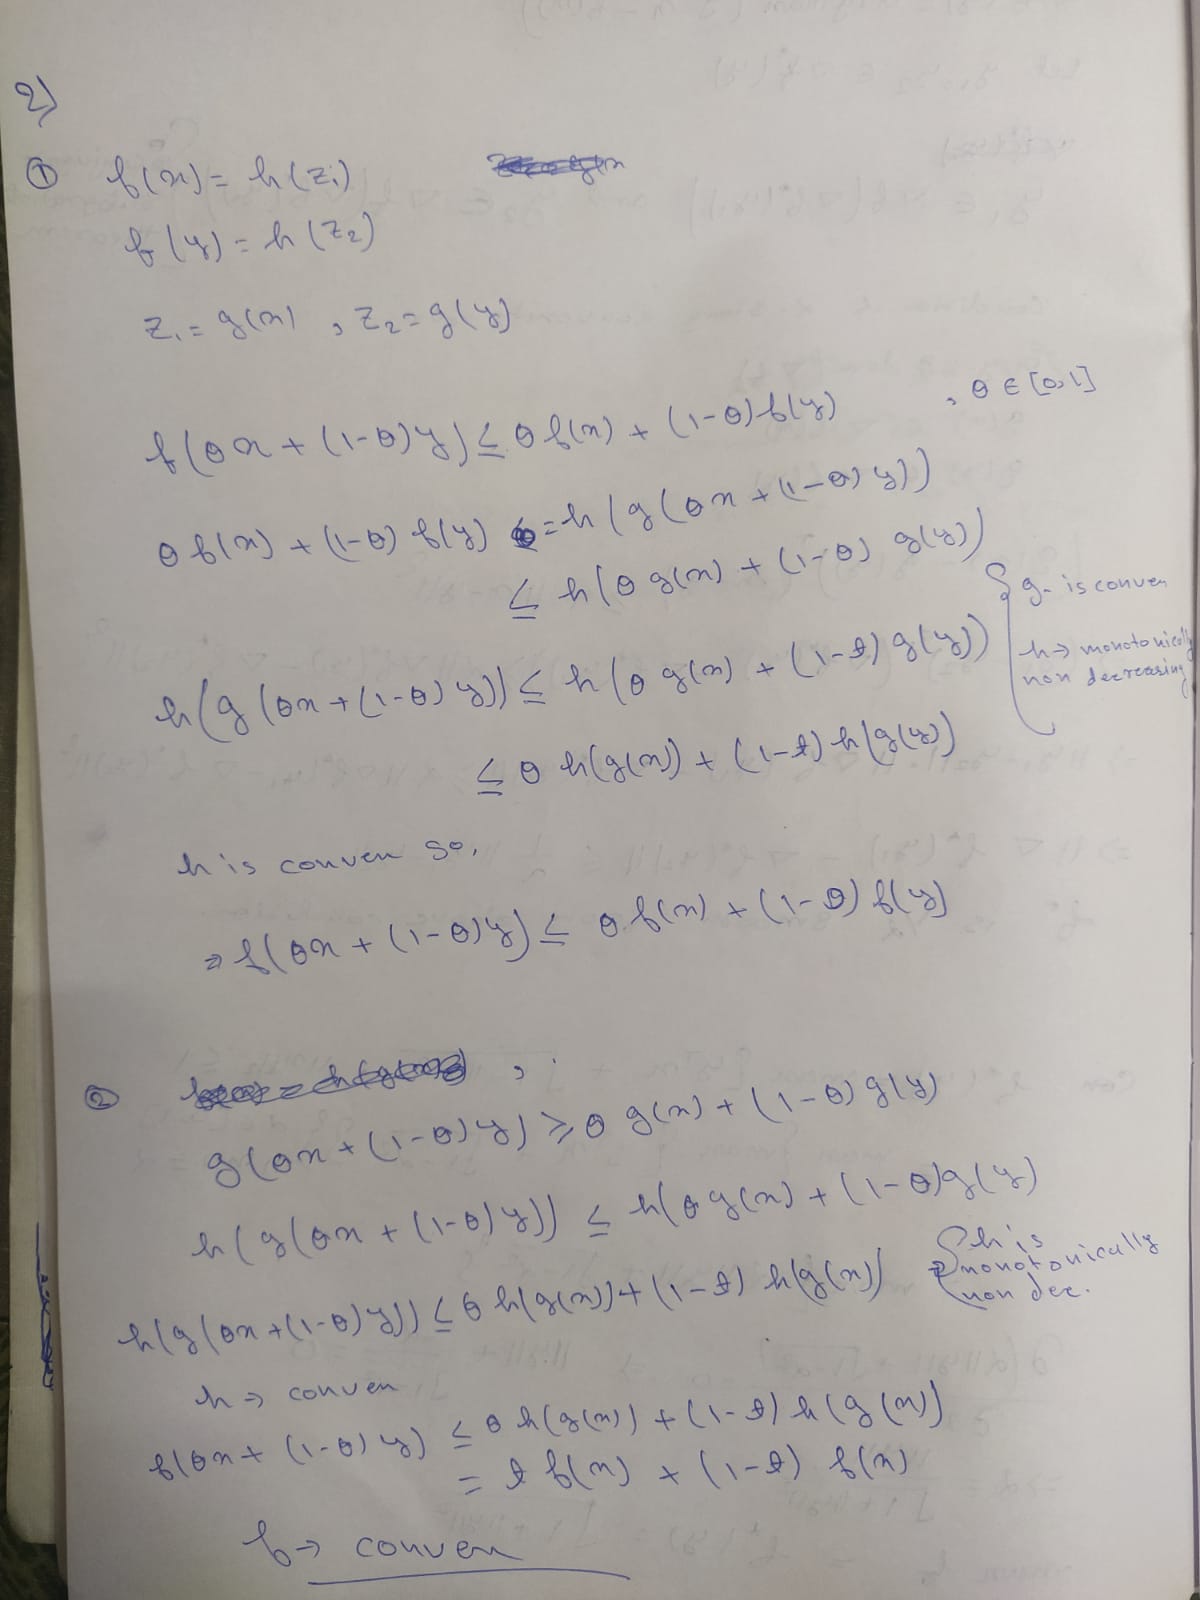 2)
① f(x) = h(z₁)
f(y) = h(z₂)
z₁ = g(x) , z₂ = g(y)
f(θx + (1-θ)y) ≤ θ f(x) + (1-θ) f(y) , θ ∈ [0,1]
θ f(x) + (1-θ) f(y) = h(g(θx + (1-θ)y))
≤ h(θ g(x) + (1-θ) g(y))
{ g is convex
h(g(θx + (1-θ)y)) ≤ h(θ g(x) + (1-θ) g(y))
h → monotonically
non decreasing
≤ θ h(g(x)) + (1-θ) h(g(y))
h is convex so,
⇒ f(θx + (1-θ)y) ≤ θ f(x) + (1-θ) f(y)
② ,
g(θx + (1-θ)y) ≥ θ g(x) + (1-θ) g(y)
h(g(θx + (1-θ)y)) ≤ h(θ g(x) + (1-θ)g(y)
{ h is
monotonically
non dec.
h(g(θx + (1-θ)y)) ≤ θ h(g(x)) + (1-θ) h(g(x))
h → convex
f(θx + (1-θ)y) ≤ θ h(g(x)) + (1-θ) h(g(x))
= θ f(x) + (1-θ) f(x)
f → convex